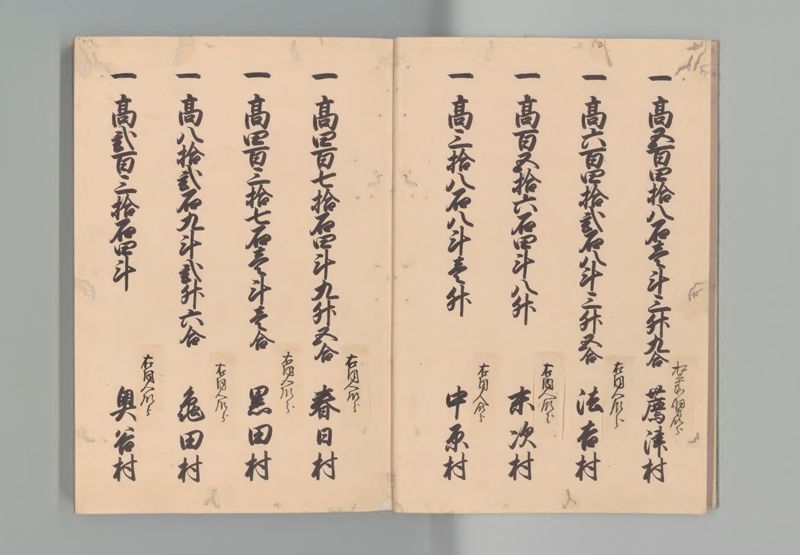 一 高五百四拾八石壱斗三升九合 薦津村
一 高六百四拾弐石八斗三升五合 法吉村
右同人領分
一 高百五拾六石四斗八升 末次村
右同人領分
一 高三拾八石八斗壱升 中原村
右同人領分
一 高四百七拾石四斗九升五合 春日村
右同人領分
一 高四百三拾七石壱斗壱合 黒田村
右同人領分
一 高八拾弐石九斗弐升六合 亀田村
右同人領分
一 高弐百三拾石四斗 奥谷村
右同人領分